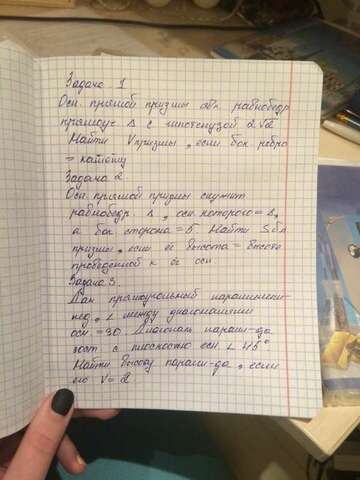 Задача 1
Осн. прямой призмы явл. равнобедр
прямоуг Δ с гипотенузой 2√2
Найти Vпризмы, если бок. ребро
= катету
Задача 2.
Осн прямой призмы служит
равнобедр Δ, осн. которого =
а бок. сторона = 5. Найти S бп
призмы, если её высота = высоте
проведенной к её осн
Задача 3.
Дан прямоугольный параллелепи-
пед, ∠ между диагоналями
осн = 30. Диагональ паралл-да
сост. с плоскостью осн. ∠ 45°
Найти высоту паралл-да, если
его V = 2